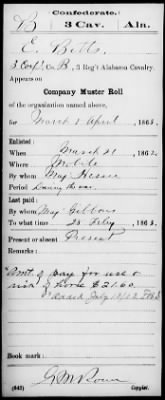 Confederate.
B 3 Cav. Ala.
E. Betts
3 Corp'l, Co. B, 3 Reg't Alabama Cavalry.
Appears on
Company Muster Roll
of the organization named above,
for March & April, 1863.
Enlisted:
When March 21, 1862.
Where Mobile
By whom Maj. Hessee
Period During the war
Last paid:
By whom Maj. Gibbons
To what time 28 Feby, 1863.
Present or absent Present
Remarks:
Amt. of pay for use &
risk of horse $21.60
Book mark:
(642) Copyist.